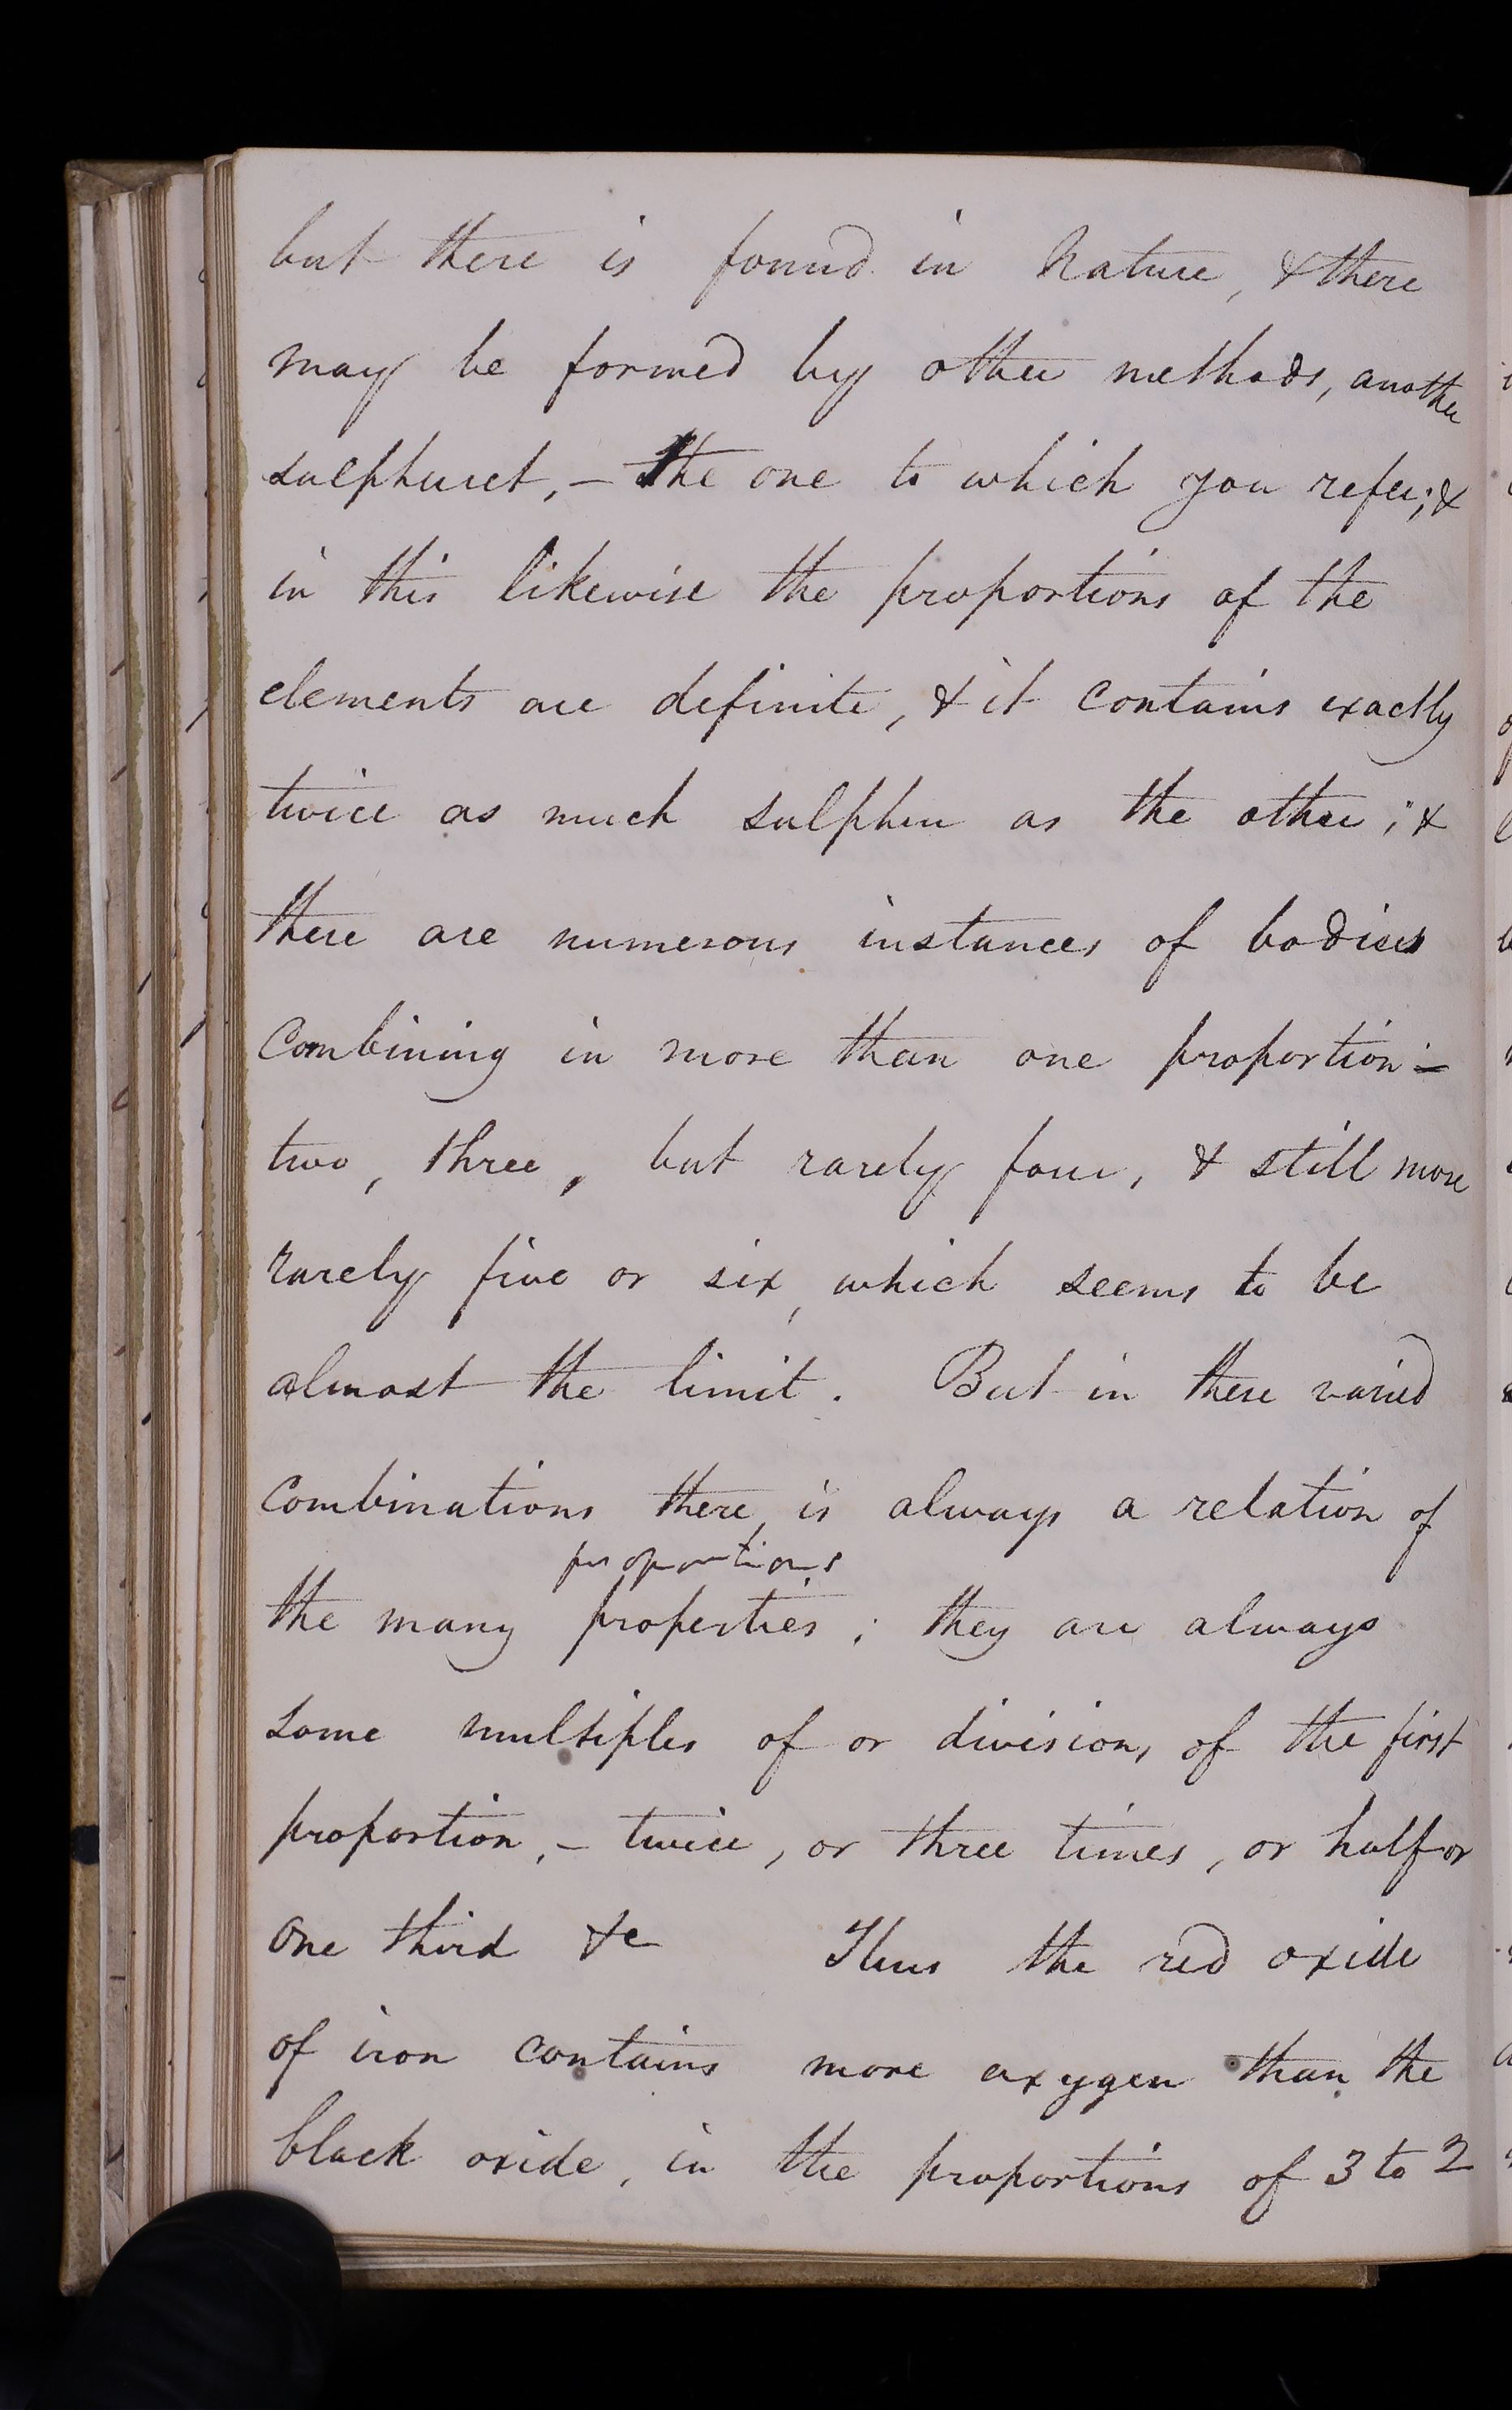 but there is found in Nature, & there
may be formed by other methods, another
sulphuret, – the one to which you refer; &
in this likewise the proportions of the
elements are definite, & it contains exactly
twice as much sulphur as the other; &
there are numerous instances of bodies
combining in more than one proportion –
two, three, but rarely four, & still more
rarely five or six, which seems to be
almost the limit. But in these varied
combinations there, is always a relation of
proportions
the many properties; they are always
some multiples of or divisions of the first
proportion, – twice, or three times, or half or
one third &c Thus the red oxide
of iron contains more oxygen than the
black oxide, in the proportions of 3 to 2